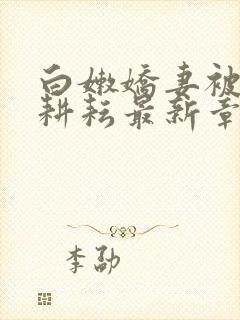 白嫩嬌妻被
耕耘最新章
李劭